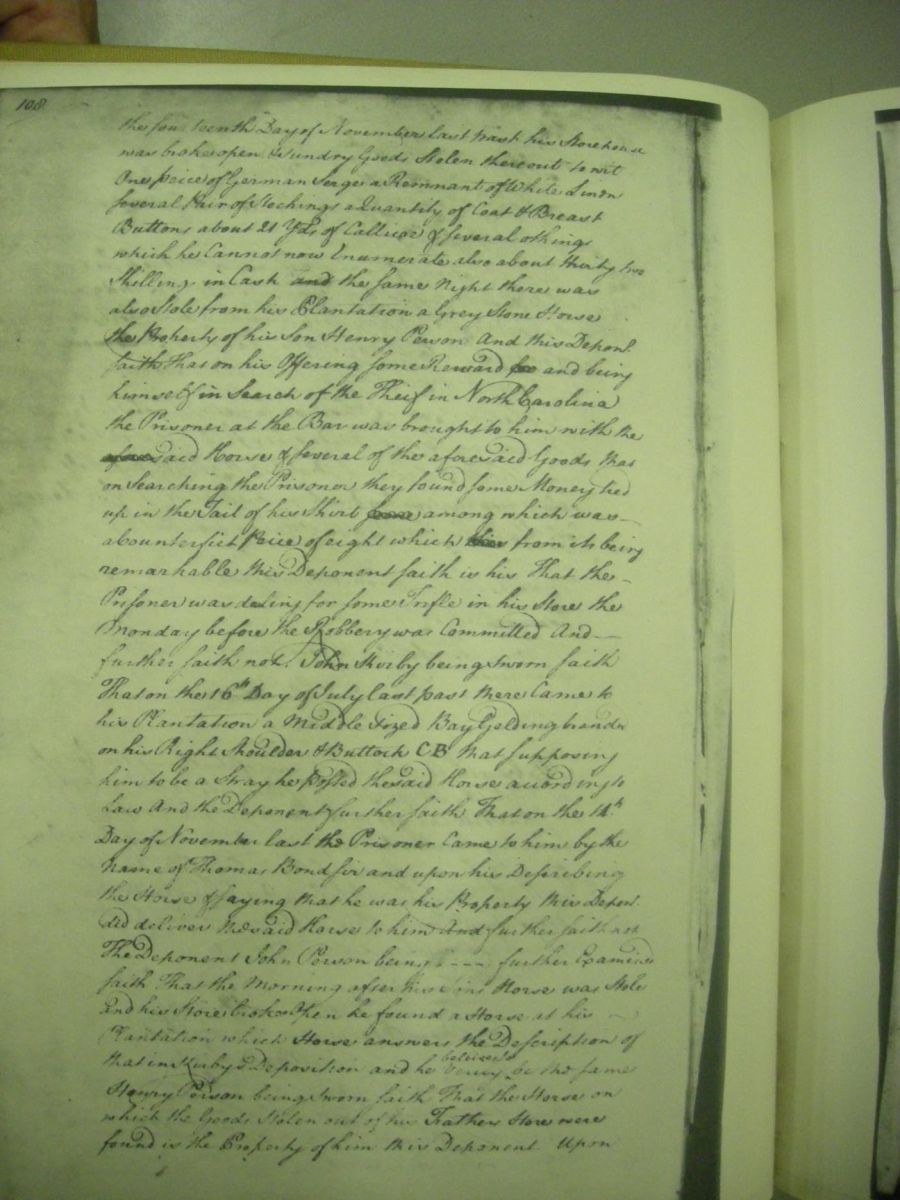 108
the fourteenth Day of November last past his Storehouse
was broke open & Sundry Goods Stolen thereout to wit
One peice of German Serge a Remnant of White Linon
Several Pair of Stockings a Quantity of Coat & Breast
Buttons about 21 Yds of Callicoe & several othings
which he Cannot now Enumerate also about thirty two
Shillings in Cash and the same Night there was
also Stole from his Plantation a Grey Stone Horse
the Property of his Son Henry Person And this Depont.
saith that on his Offering some Reward for and being
himself in Search of the Theif in North Carolina
the Prisoner at the Bar was brought to him with the
aforesaid Horse & several of the aforesaid Goods that
on Searching the Prisoner they found some Money tied
up in the Tail of his Shirt among which was
a Counterfict Peice of eight which from its being
remarkable this Deponent saith is his That the
Prisoner was dealing for some Trifle in his Store the
Monday before the Robbery was Committed And
further saith not. John Kirby being Sworn saith
That on the 16th Day of July last past there Came to
his Plantation a Middle sized Bay Gelding brande
on his Right Shoulder & Buttock CB that supposing
him to be a Stray he Posted the said Horse according to
Law And the Deponent further saith That on the 14th.
Day of November last the Prisoner Came to him by the
Name of Thomas Bond sir and upon his Describing
the Horse & saying that he was his Property this Depont.
did deliver the said Horse to him And further saith not
The Deponent John Person being - - - - further Examined
saith That the Morning after his Sons Horse was Stole
and his Store broke Open he found a Horse at his
Plantation which Horse answers the Description of
that in Kirby's Deposition and he believes be the same
Henry Person being Sworn saith That the Horse on
which the Goods Stolen out of his Fathers Store were
found is the Property of him this Deponent. Upon